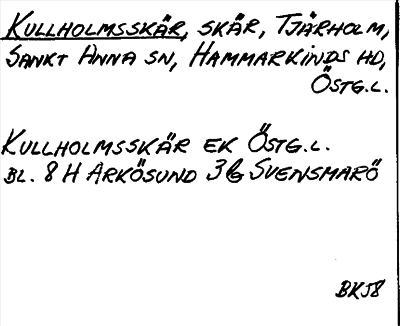 KULLHOLMSSKÄR, SKÄR, TJÄRHOLM,
SANKT ANNA SN, HAMMARKINDS HD,
ÖSTG.L.
KULLHOLMSSKÄR EK ÖSTG.L.
BL. 8 H ARKÖSUND 3b SVENSMARÖ
BKJ8